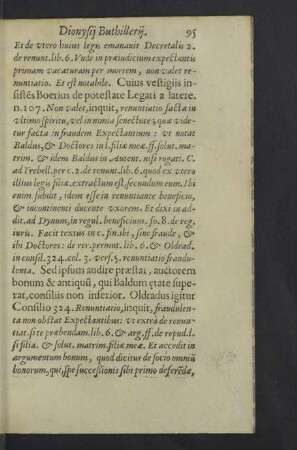 Dionysij Buthillerij. 95
Et de vtero huius legis emanauit Decretalis 2.
de renunt. lib. 6. Vnde in præiudicium expectantis
primam vacaturam per mortem, non valet re-
nuntiatio. Et est notabile. Cuius vestigiis in-
sistẽs Boerius de potestate Legati a latere.
n. 107. Non valet, inquit, renuntiatio facta in
vltimo spiritu, vel in nimia senectute; quæ vide-
tur facta in fraudem Expectantium: vt notat
Baldus, & Doctores in l. filiæ meæ. ff. solut. ma-
trim, & idem Baldus in Autent. nisi rogati. C.
ad Trebell. per c. 2. de renunt. lib. 6. quod ex vtero
illius legis filiæ. extractum est, secundum eum. Ibi
enim subdit, idem esse in renuntiante beneficio,
& incontinenti ducente vxorem. Et dixi in ad-
dit. ad Dynum, in regul. beneficium. fo. 8. de reg.
iuris. Facit textus in c. fin. ibi, sine fraude, &
ibi Doctores: de rer. permut. lib. 6. & Oldrad,
in consil. 324. col. 3. vers. 5. renuntiatio fraudu-
lenta. Sed ipsum audire præstat, auctorem
bonum & antiquũ, qui Baldum ętate supe-
rat, consiliis non inferior. Oldradus igitur
Consilio 324. Renuntiatio, inquit, fraudulen-
ta non obstat Expectantibus: vt extrà de renun-
tiat. si te præbendam. lib. 6. & arg. ff. de repud. l.
si filia. & solut. matrim. filiæ meæ. Et accedit in
argumentum bonum, quod dicitur de socio omniũ
bonorum, qui, spe successionis sibi primo deferẽdæ,